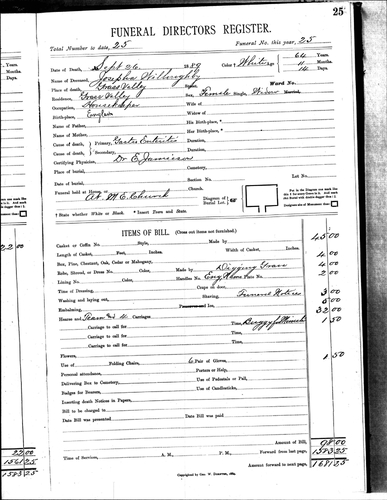 25
FUNERAL DIRECTORS REGISTER.
Total Number to date, 25 Funeral No. this year, 25
Date of Death, Sept 26 1889 Color † White 64 Years.
Name of Deceased, Willoughby 11 Months.
Place of death, Grass Valley Street, 14 Days.
Residence, Grass Valley Street, Female Single, Widow, Married. Ward No.
Occupation, Housekeeper Wife of
Birth-place, Widow of
Name of Father, His Birth-place, *
Name of Mother, Her Birth-place, *
Cause of death, Primary, Gastro Enteritis Duration,
Cause of death, Secondary, Duration,
Certifying Physician, Dr E. Jamieson
Place of burial, Cemetery,
Date of burial, Section No. Lot No.
Funeral held at Home, or At M.E. Church Church.
Diagram of Burial Lot,
† State whether White or Black. * Insert Town and State.
ITEMS OF BILL. (Cross out items not furnished.)
Casket or Coffin No. Style, Made by 45.00
Length of Casket, Feet, Inches. Width of Casket, Inches.
Box, Pine, Chestnut, Oak, Cedar or Mahogany, 4.00
Robe, Shroud, or Dress No. Color, Made by Digging Grave 4.00
Lining No. Color, Handles No. Plate No. 2.00
Time of Dressing, Crape on door,
Washing and laying out, Shaving, Funeral Notices 3.00
Embalming, Ice, 5.00
Hearse and Team Carriages 32.00
Carriage to call for Time, 1.50
Carriage to call for Time,
Carriage to call for Time,
Flowers,
Use of Folding Chairs, 6 Pair of Gloves, 1.50
Personal attendance, Porters or Help,
Delivering Box in Cemetery, Use of Pedestals or Pall,
Badges for Bearers, Use of Candlesticks,
Inserting death Notices in Papers,
Bill to be charged to
Date Bill was presented Date Bill was paid
Amount of Bill, 98.00
Time of Services, A. M., P. M., Forward from last page, 1583.25
Amount forward to next page, 1681.25
22.00
22.00
1561.25
1583.25